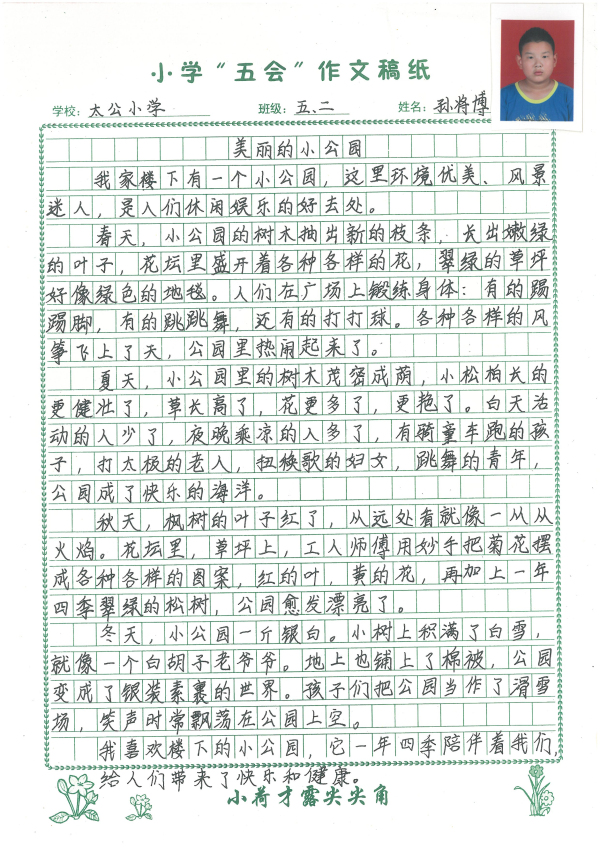 小学“五会”作文稿纸
学校：太公小学 班级：五、二 姓名：孙将博
美丽的小公园
我家楼下有一个小公园，这里环境优美、风景
迷人，是人们休闲娱乐的好去处。
春天，小公园的树木抽出新的枝条，长出嫩绿
的叶子，花坛里盛开着各种各样的花，翠绿的草坪
好像绿色的地毯。人们在广场上锻练身体：有的踢
踢脚，有的跳跳舞，还有的打打球。各种各样的风
筝飞上了天，公园里热闹起来了。
夏天，小公园里的树木茂密成荫，小松柏长的
更健壮了，草长高了，花更多了，更艳了。白天活
动的人少了，夜晚乘凉的人多了，有骑童车跑的孩
子，打太极的老人，扭秧歌的妇女，跳舞的青年，
公园成了快乐的海洋。
秋天，枫树的叶子红了，从远处看就像一从从
火焰。花坛里，草坪上，工人师傅用妙手把菊花摆
成各种各样的图案，红的叶，黄的花，再加上一年
四季翠绿的松树，公园愈发漂亮了。
冬天，小公园一斤银白。小树上积满了白雪，
就像一个白胡子老爷爷。地上也铺上了棉被，公园
变成了银装素裹的世界。孩子们把公园当作了滑雪
场，笑声时常飘荡在公园上空。
我喜欢楼下的小公园，它一年四季陪伴着我们，
给人们带来了快乐和健康。
小荷才露尖尖角